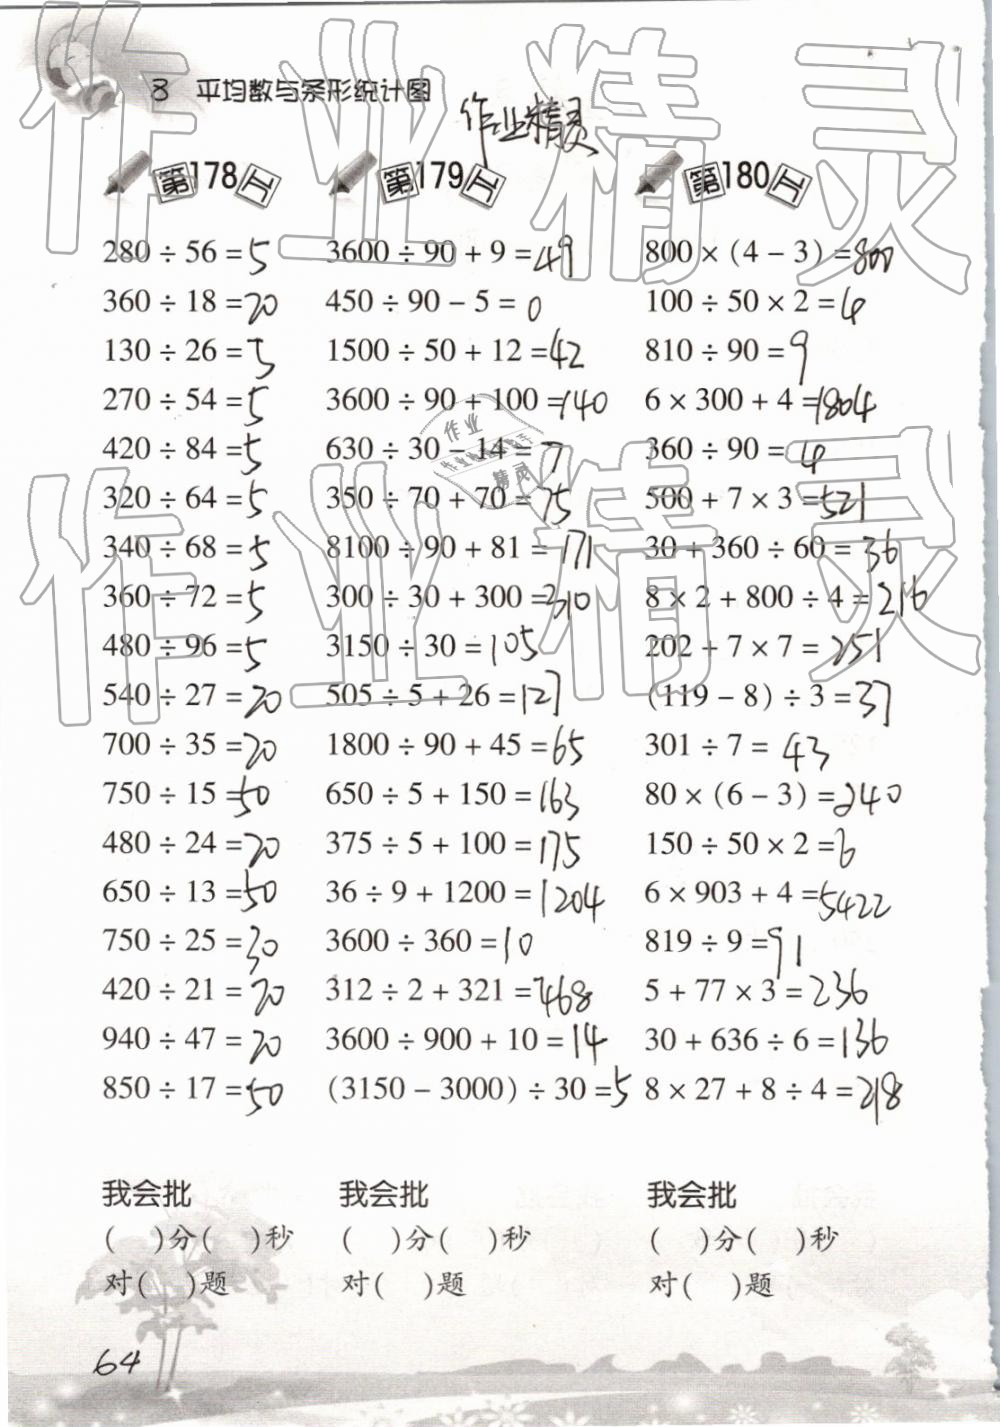 8 平均数与条形统计图
作业精灵
第178天
280 ÷ 56 = 5
360 ÷ 18 = 20
130 ÷ 26 = 5
270 ÷ 54 = 5
420 ÷ 84 = 5
320 ÷ 64 = 5
340 ÷ 68 = 5
360 ÷ 72 = 5
480 ÷ 96 = 5
540 ÷ 27 = 20
700 ÷ 35 = 20
750 ÷ 15 = 50
480 ÷ 24 = 20
650 ÷ 13 = 50
750 ÷ 25 = 30
420 ÷ 21 = 20
940 ÷ 47 = 20
850 ÷ 17 = 50
我会批
( )分( )秒
对( )题
第179天
3600 ÷ 90 + 9 = 49
450 ÷ 90 − 5 = 0
1500 ÷ 50 + 12 = 42
3600 ÷ 90 + 100 = 140
630 ÷ 30 − 14 = 7
350 ÷ 70 + 70 = 75
8100 ÷ 90 + 81 = 171
300 ÷ 30 + 300 = 310
3150 ÷ 30 = 105
505 ÷ 5 + 26 = 127
1800 ÷ 90 + 45 = 65
650 ÷ 5 + 150 = 163
375 ÷ 5 + 100 = 175
36 ÷ 9 + 1200 = 1204
3600 ÷ 360 = 10
312 ÷ 2 + 321 = 468
3600 ÷ 900 + 10 = 14
(3150 − 3000) ÷ 30 = 5
我会批
( )分( )秒
对( )题
第180天
800 × (4 − 3) = 800
100 ÷ 50 × 2 = 4
810 ÷ 90 = 9
6 × 300 + 4 = 1804
360 ÷ 90 = 4
500 + 7 × 3 = 521
30 + 360 ÷ 60 = 36
8 × 2 + 800 ÷ 4 = 216
202 + 7 × 7 = 251
(119 − 8) ÷ 3 = 37
301 ÷ 7 = 43
80 × (6 − 3) = 240
150 ÷ 50 × 2 = 6
6 × 903 + 4 = 5422
819 ÷ 9 = 91
5 + 77 × 3 = 236
30 + 636 ÷ 6 = 136
8 × 27 + 8 ÷ 4 = 218
我会批
( )分( )秒
对( )题
64
作业精灵
作业
精灵
作业精灵